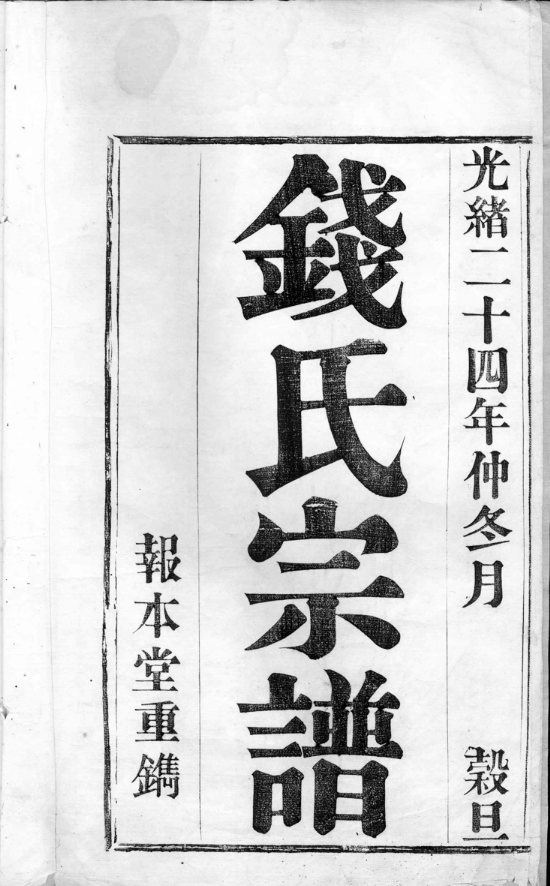 光緒二十四年仲冬月 穀旦
錢氏宗譜
報本堂重鐫